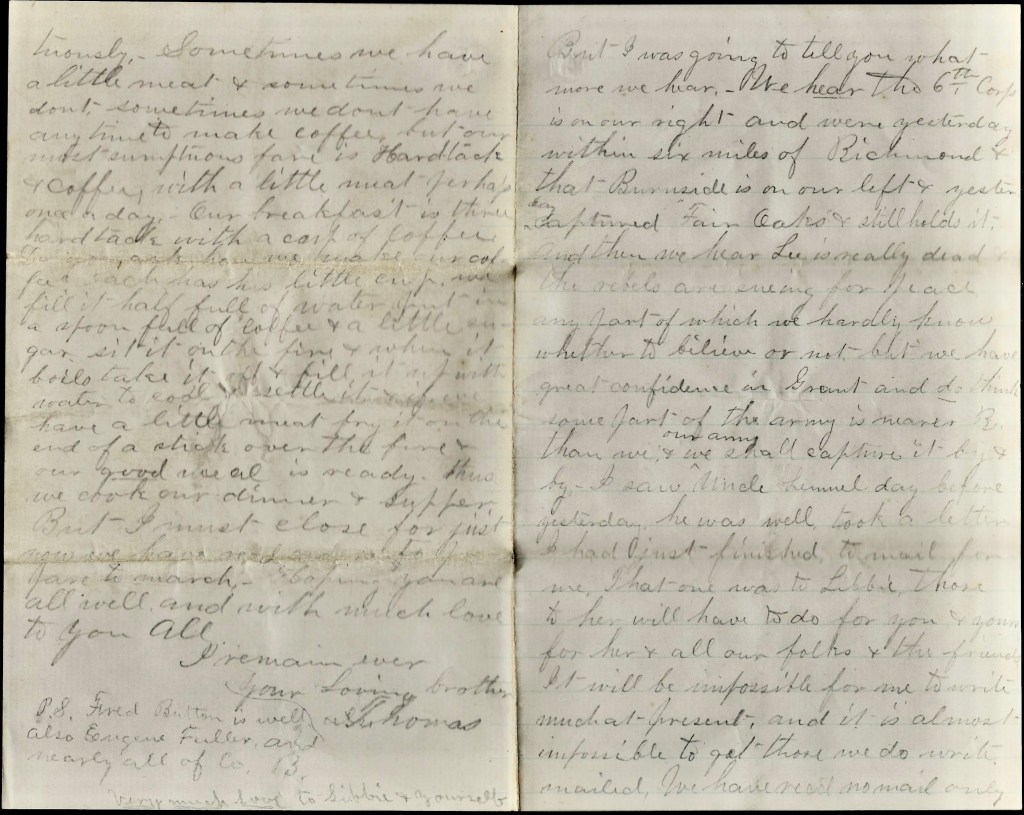 tuously,- Sometimes we have
a little meat & sometimes we
dont, sometimes we dont have
any time to make coffee, but our
most sumptuous fare is Hardtack
& coffee, with a little meat perhaps
once a day,- Our breakfast is three
hardtack with a cup of Coffee
Do you ask how we make our cof
fee, each has his little cup, we
fill it half full of water, put in
a spoon full of Coffee & a little su-
gar, sit it on the fire & when it
boils take it off & fill it up with
water to cool & settle it & if we
have a little meat fry it on the
end of a stick over the fire &
our good meal is ready. Thus
we cook our dinner & supper
But I must close for just
now we have orders to pre
pare to march,- Hoping you are
all well, and with much love
to you All
I remain ever
Your Loving brother
Thomas
P.S. Fred Button is well,
also Eugene Fuller, and
nearly all of Co. B.
Very much love to Libbie & yourself
But I was going to tell you what
more we hear,- We hear the 6th Corps
is on our right and were yesterday
within six miles of Richmond &
that Burnside is on our left & yester
day
captured "Fair Oaks" & still holds it.
And then we hear Lee is really dead &
the rebels are sueing for peace
any part of which we hardly know
whether to bilieve or not, but we have
great confidence in Grant and do think
some part of the army is nearer R.
than we, & we shall capture it by &
our army
by,- I saw Uncle Lemuel day before
yesterday, he was well, took a letter
I had just finished, to mail for
me, That one was to Libbie, Those
to her will have to do for you & yours
for her & all our folks & the friends
It will be impossible for me to write
much at present, and it is almost
impossible to get those we do write
mailed, We have rec'd no mail only